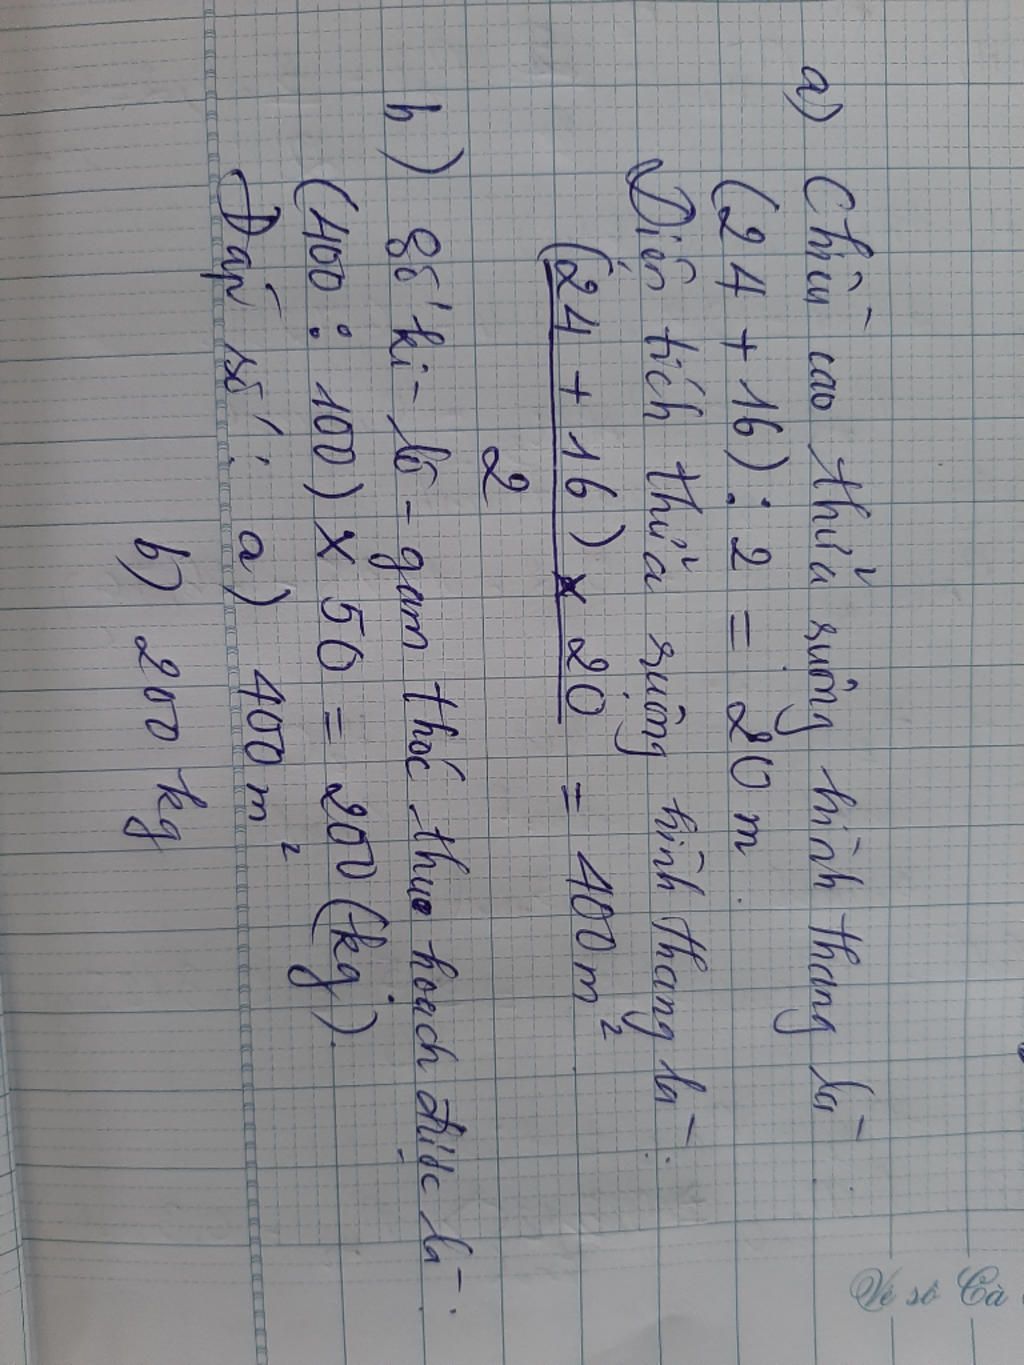 a) Chiều cao thửa ruộng hình thang là:
(24 + 16) : 2 = 20 m.
Diện tích thửa ruộng hình thang là:
(24 + 16) x 20 = 400 m²
2
b) Số ki-lô-gam thóc thu hoạch được là:
(400 : 100) x 50 = 200 (kg).
Đáp số: a) 400 m²
b) 200 kg
Vé số Cà